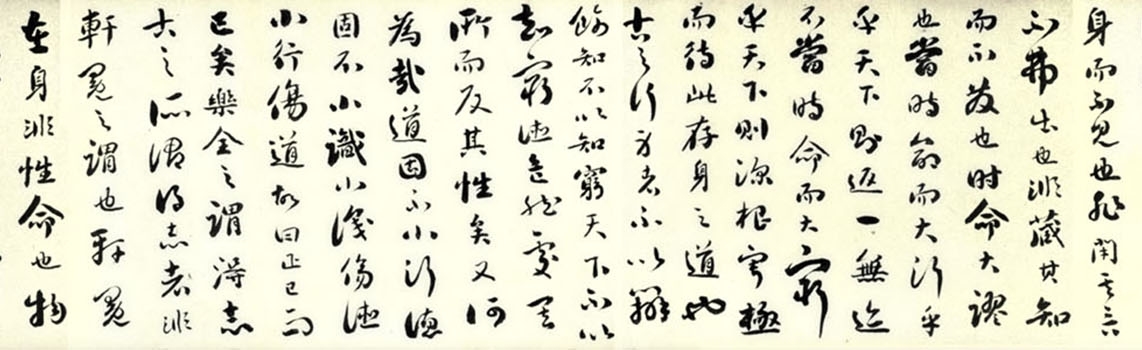 身而不見也非閉其言
而弗出也非藏其知
而不發也时命大謬
也當時命而大行乎
乎天下則返一無迹
不當時命而大窮
乎天下則深根寧極
而待此存身之道也
古之行身者不以辯
飾知不以知窮天下不以
知窮德危然處其
所而反其性矣又何
為哉道固不小行德
固不小識小識傷德
小行傷道故曰正己而
已矣樂全之謂得志
古之所謂得志者非
軒冕之謂也軒冕
在身非性命也物